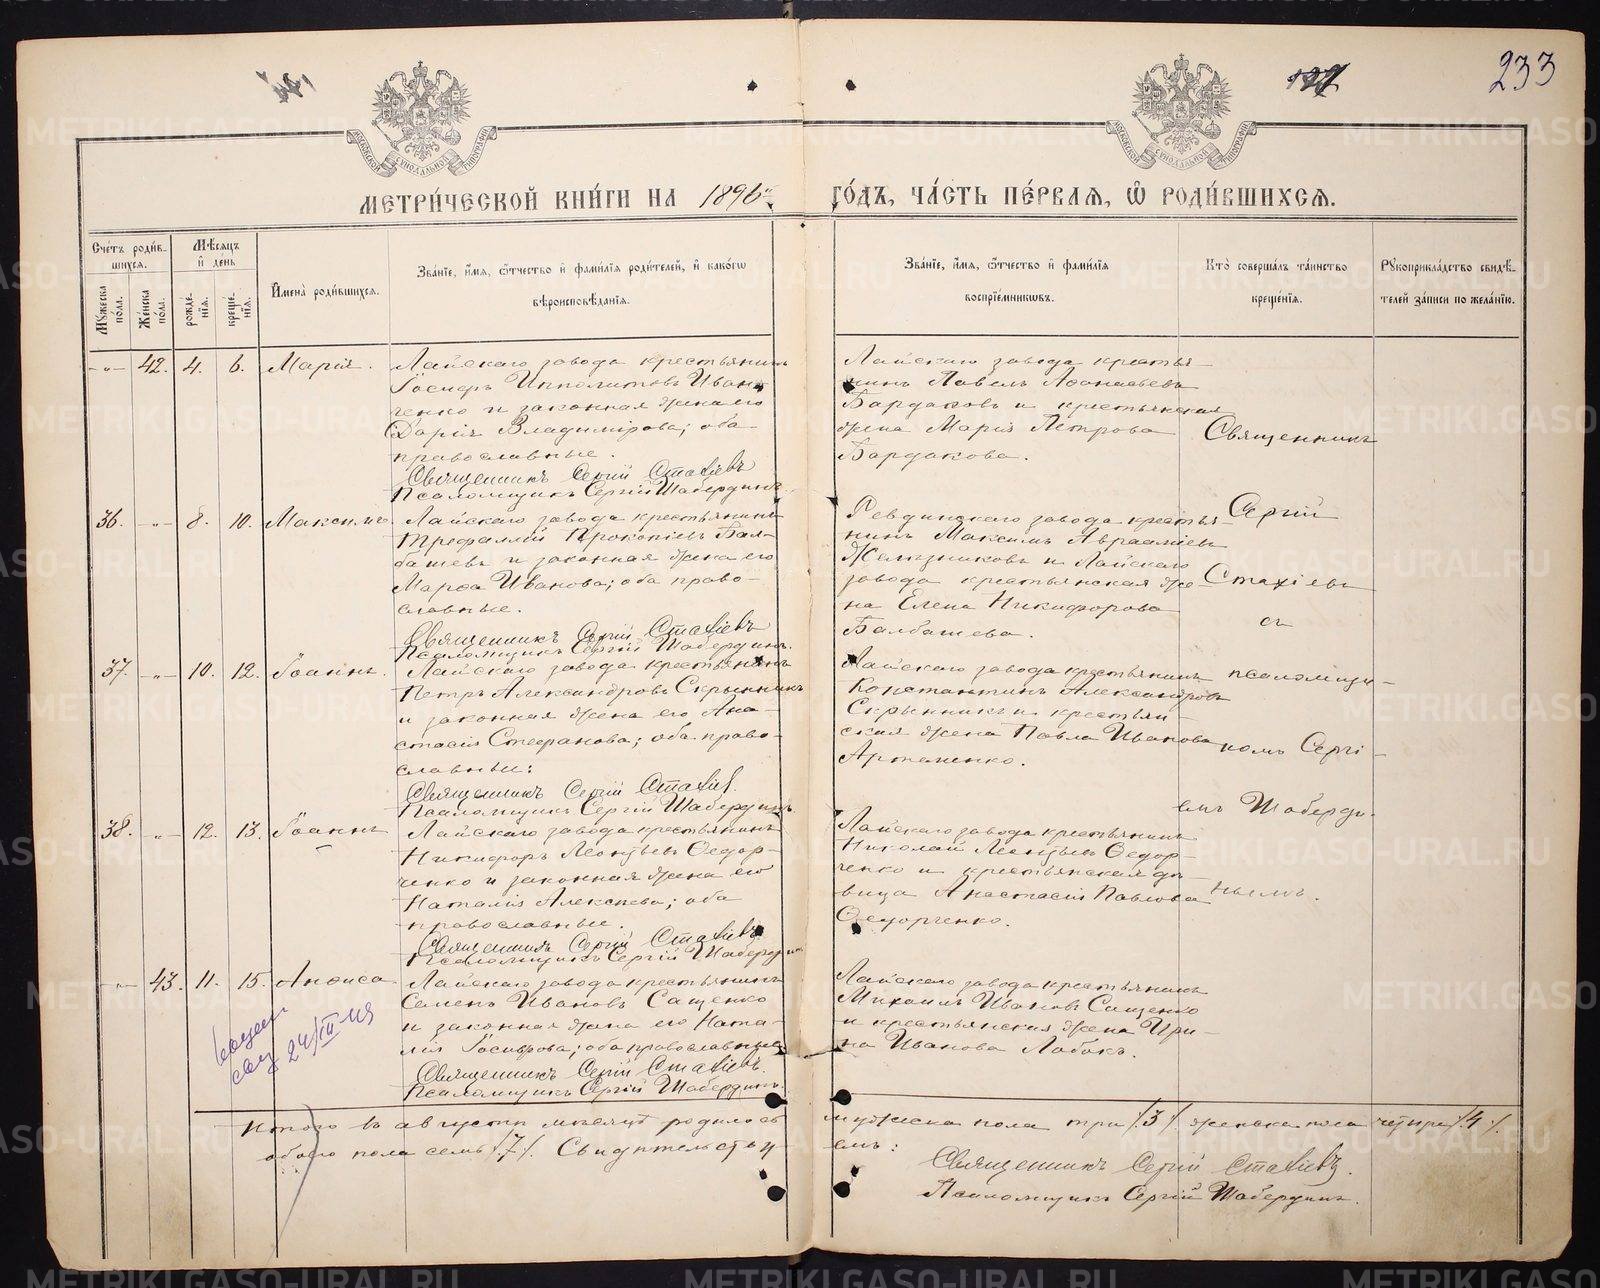 233
МОСКОВСКОЙ СѴНОДАЛЬНОЙ ТИПОГРАФИИ
МОСКОВСКОЙ СѴНОДАЛЬНОЙ ТИПОГРАФИИ
МЕТРИ́ЧЕСКОЙ КНИ́ГИ НА 1896й ГО́ДЪ, ЧА́СТЬ ПЕ́РВАЯ, Ѡ РОДИ́ВШИХСЯ.
Сче́тъ роди́в-
шихся.
Му́жеска по́ла.
Же́нска по́ла.
Мѣ́сяцъ
и де́нь
рожде́-
нія.
креще́-
нія.
Имена̀ роди́вшихся.
Зва́ніе, и́мя, ѻ́тчество и фами́лія роди́телей, и како́гѡ
вѣроисповѣ́данія.
Зва́ніе, и́мя, ѻ́тчество и фами́лія
воспріе́мникѡвъ.
Кто̀ соверша́лъ та́инство
креще́нія.
Рꙋкоприкла́дство свидѣ́-
телей за́писи по жела́нію.
-„- 42. 4. 6. Марія.
Лайскаго завода крестьянинъ
Іосифъ Ипполитовъ Иван-
ченко и законная жена его
Дарія Владимірова; оба
православные.
Священникъ Сергій Стахіевъ
Псаломщикъ Сергій Шабердинъ.
Лайскаго завода крестья-
нинъ Павелъ Аѳанасьевъ
Бардаковъ и крестьянская
жена Марія Петрова
Бардакова.
36. -„- 8. 10. Максимъ.
Лайскаго завода крестьянинъ
Трефиллій Прокопіевъ Бал-
башевъ и законная жена его
Марѳа Иванова; оба право-
славные.
Священникъ Сергій Стахіевъ
Псаломщикъ Сергій Шабердинъ.
Ревдинскаго завода крестья-
нинъ Максимъ Авраамiевъ
Желѣзниковъ и Лайскаго
завода крестьянская же-
на Елена Никифорова
Балбашева.
37. -„- 10. 12. Іоаннъ.
Лайскаго завода крестьянинъ
Петръ Александровъ Скрынникъ
и законная жена его Ана-
стасія Стефанова; оба право-
славные:
Священникъ Сергій Стахіевъ.
Псаломщикъ Сергій Шабердинъ
Лайскаго завода крестьянинъ
Константинъ Александровъ
Скрынникъ и крестьян-
ская жена Павла Иванова
Артеменко.
38. -„- 12. 13. Іоаннъ
Лайскаго завода крестьянинъ
Никифоръ Леонтьевъ Ѳедор-
ченко и законная жена его
Наталія Алексѣева; оба
православные.
Священникъ Сергій Стахіевъ
Псаломщикъ Сергій Шабердинъ
Лайскаго завода крестьянинъ
Николай Леонтьевъ Ѳедор-
ченко и крестьянская дѣ-
вица Анастасія Павлова
Ѳедорченко.
-„- 43. 11. 15. Анѳиса
Лайскаго завода крестьянинъ
Семенъ Ивановъ Сащенко
и законная жена его Ната-
лія Іосифова; оба православные
Священникъ Сергій Стахіевъ.
Псаломщикъ Сергій Шабердинъ.
Лайскаго завода крестьянинъ
Михаилъ Ивановъ Сащенко
и крестьянская жена Ири-
на Иванова Лобокъ.
Священникъ
Сергій
Стахіевъ
съ
псаломщи-
комъ Сергі-
емъ Шаберди-
нымъ.
24/III-49
Итого въ августѣ мѣсяцѣ родилось мужеска пола три /3/, женска пола четыре /4/.
обоего пола семь /7/. Свидѣтельству-емъ:
Священникъ Сергій Стахіевъ.
Псаломщикъ Сергій Шабердинъ.
METRIKI.GASO-URAL.RU